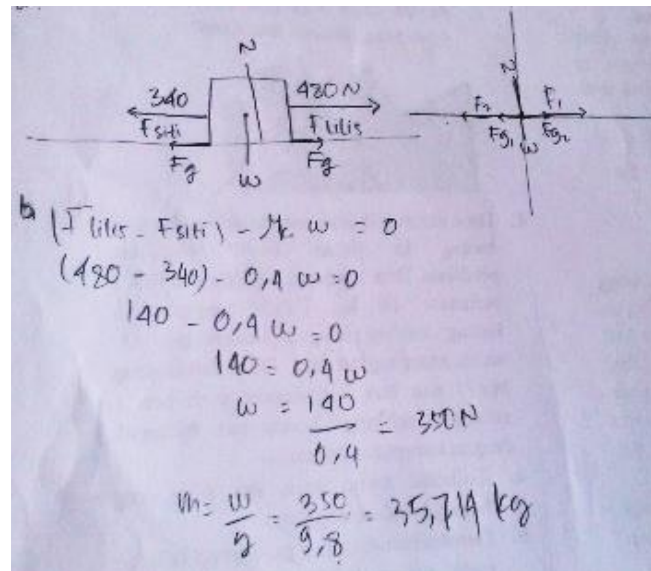 N N
340 480 N F₂ F₁
F siti F lilis Fg₁ Fg₂
Fg Fg W
W
b (F lilis - F siti) - μk w = 0
(480 - 340) - 0,4 w = 0
140 - 0,4 w = 0
140 = 0,4 w
w = 140
0,4
= 350 N
m = w/g = 350/9,8 = 35,714 kg